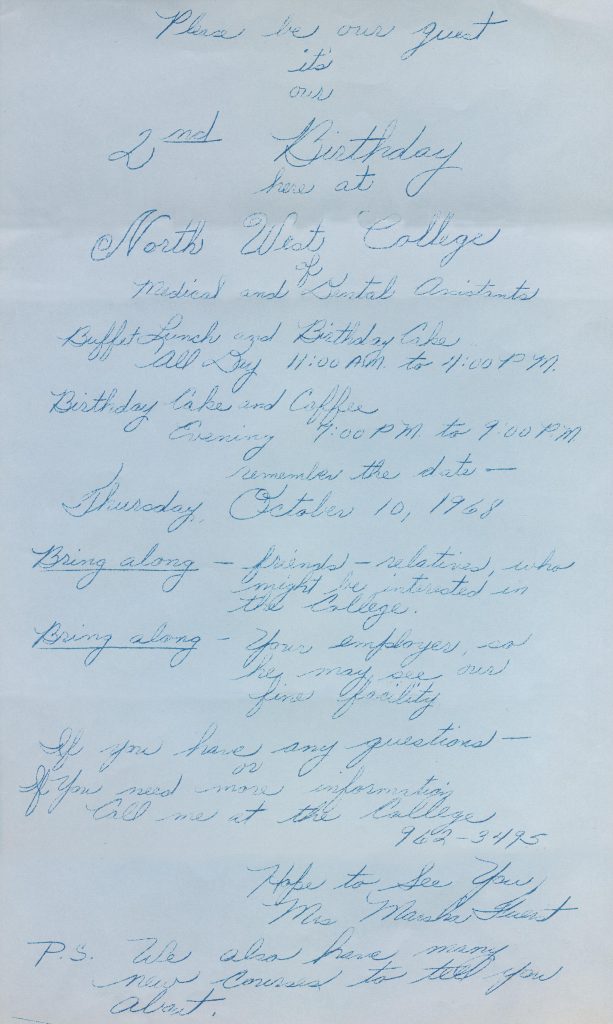 Please be our guest
it's
our
2nd Birthday
here at
North West College
of
Medical and Dental Assistants
Buffet Lunch and Birthday Cake
All Day 11:00 A.M. to 4:00 P.M.
Birthday Cake and Coffee
Evening 7:00 P.M. to 9:00 P.M.
remember the date —
Thursday, October 10, 1968
Bring along - friends - relatives, who
might be interested in
the College.
Bring along - Your employer, so
he may see our
fine facility
If you have any questions —
or
If You need more information
Call me at the College
962-3495
Hope to See You,
Mrs Marsha
P.S. We also have many
new courses to tell you
about.